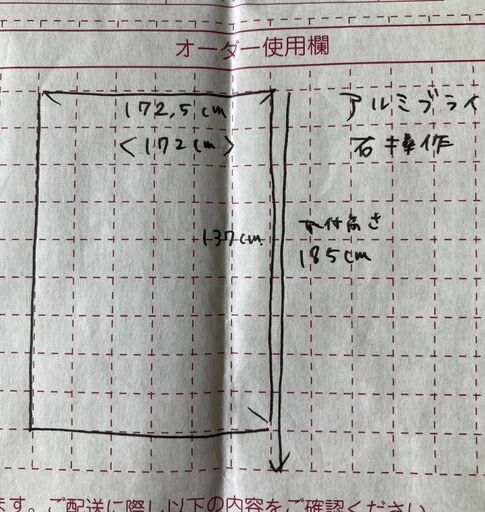 オーダー使用欄
172,5cm
<172cm>
137cm
アルミブライ
右操作
取付高さ
185cm
ます。ご配送に際し以下の内容をご確認ください